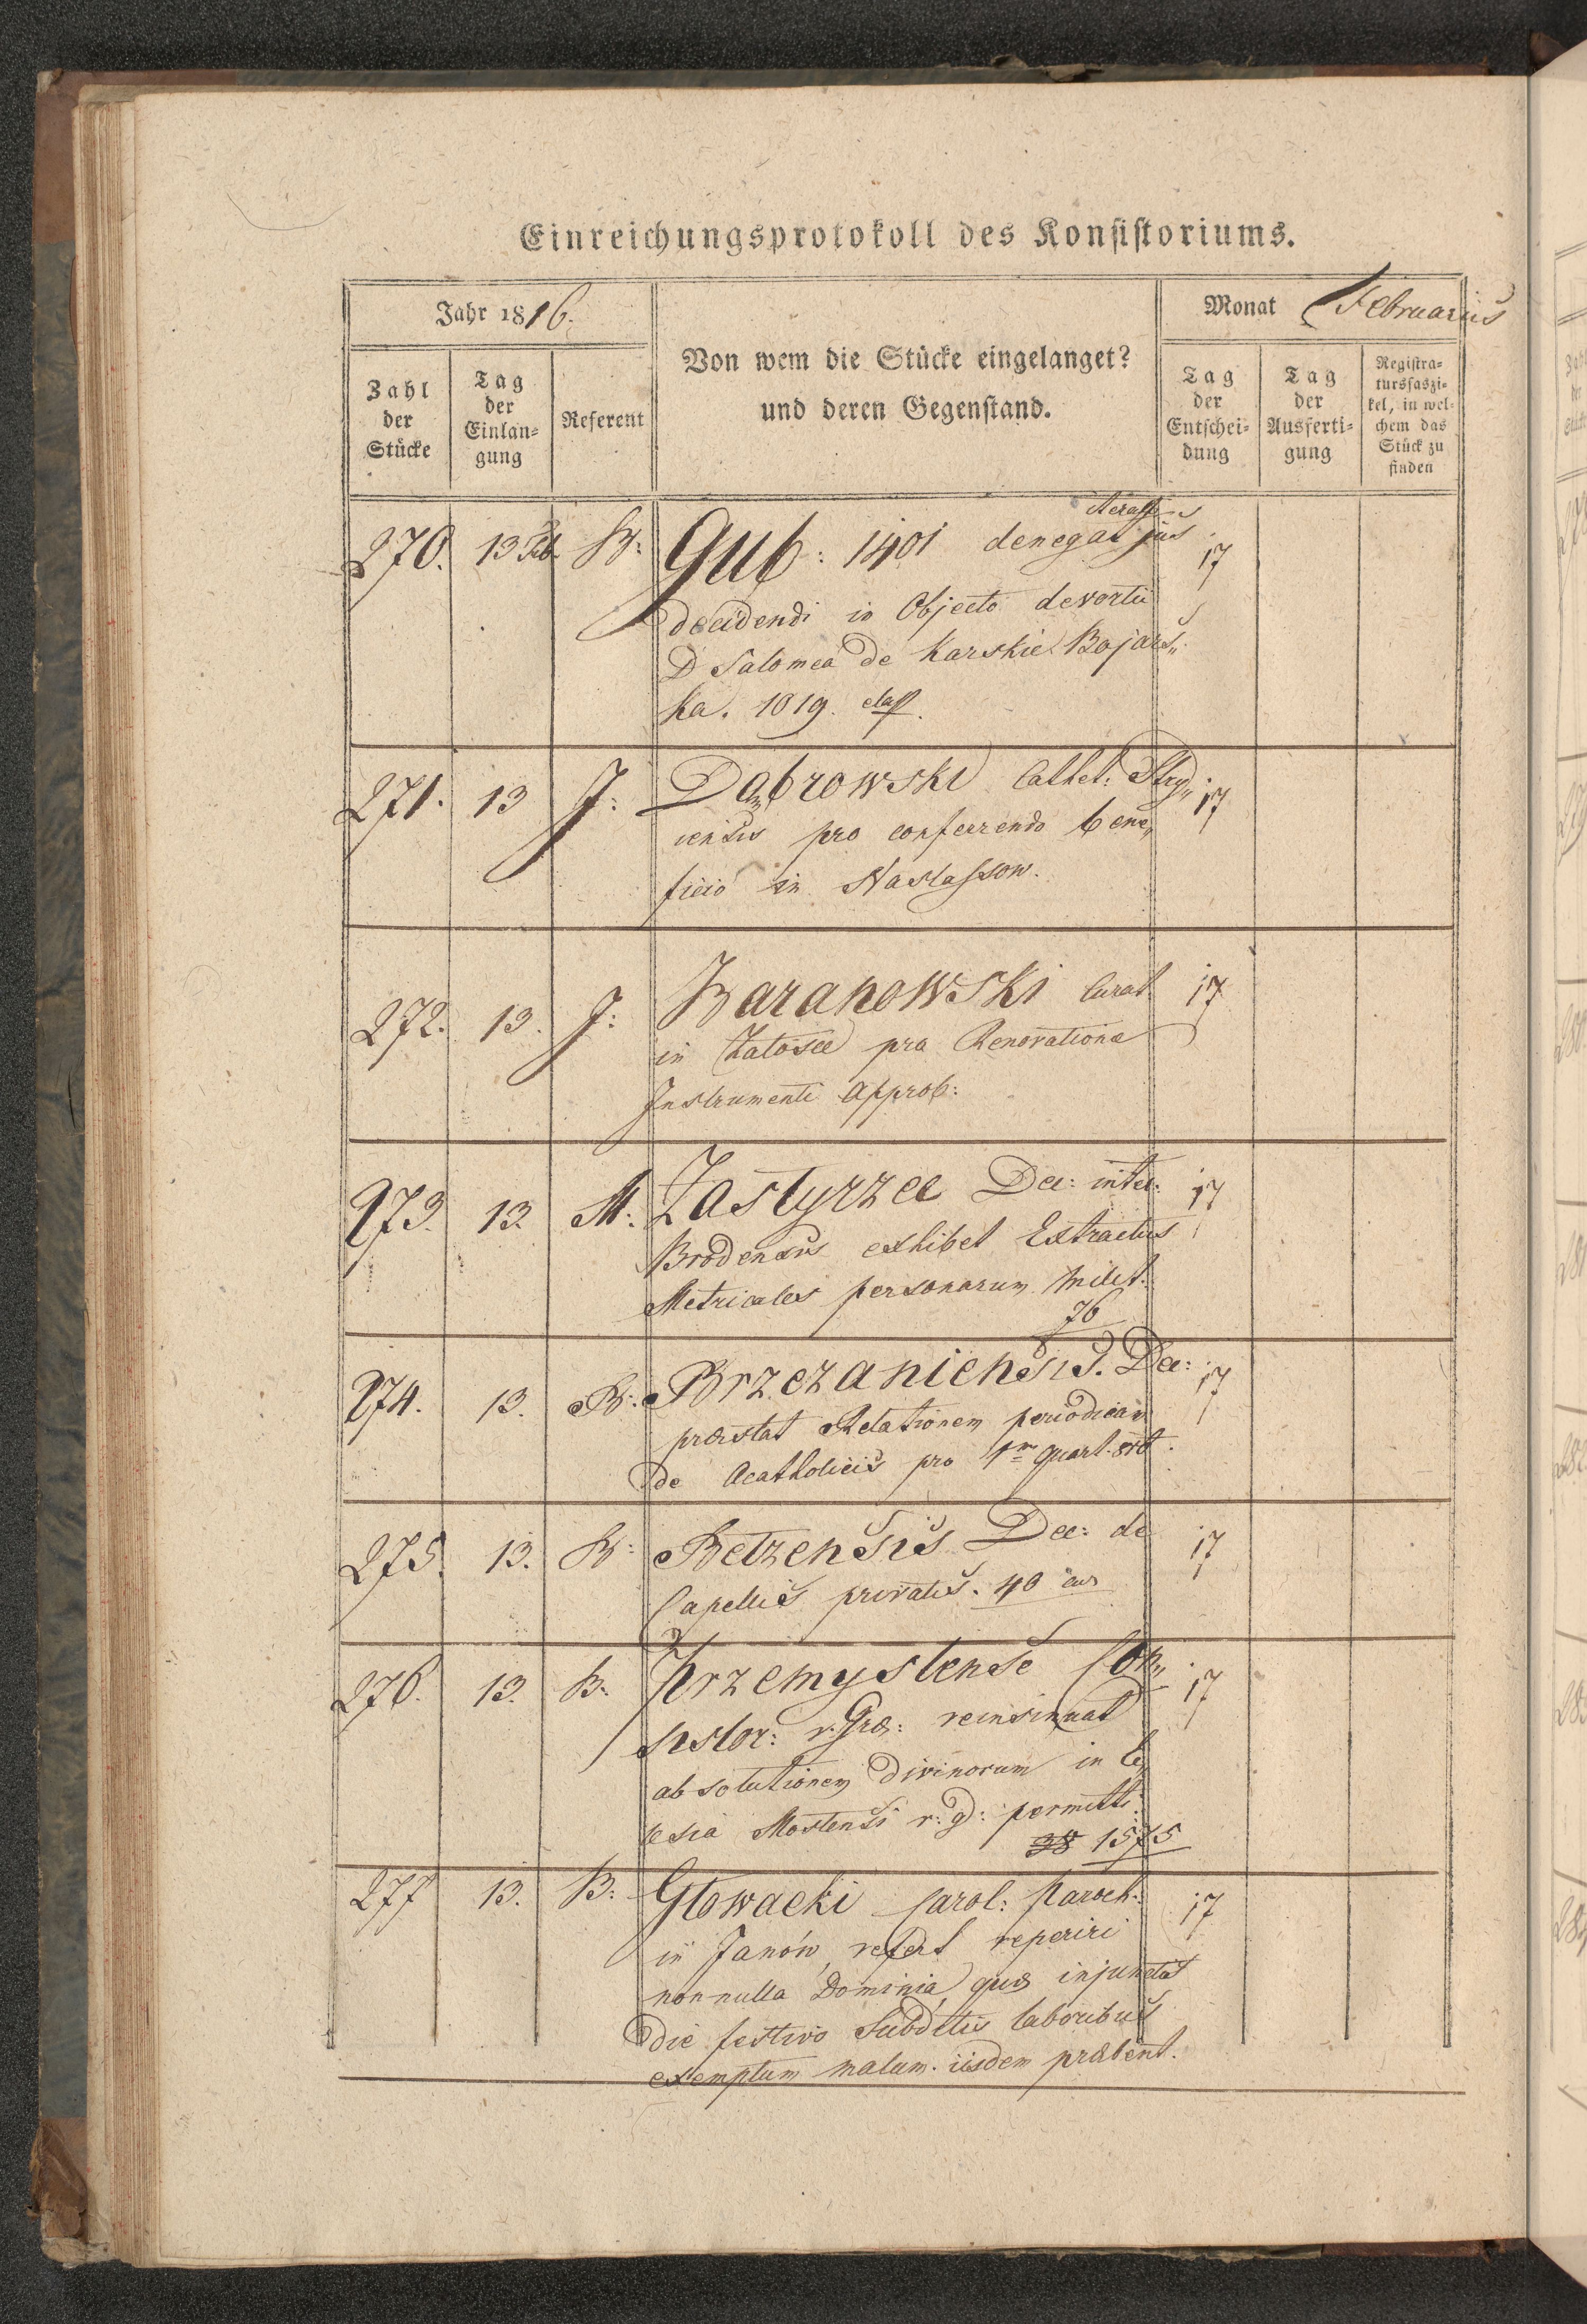 Einreichungsprotokoll des Konsistoriums.
Jahr 1816.
Von wem die Stücke eingelanget?
und deren Gegenstand.
Monat Februarius
Zahl
der
Stücke
Tag
der
Einlan=
gung
Referent
Tag
der
Entschei=
dung
Tag
der
Ausferti=
gung
Registra=
tursfaszi=
kel, in wel=
chem das
Stück zu
finden
270. 13 Feb. B: Gub: 1401 denegat jus 17
decidendi in Objecto devortii
D Salomea de Karskie Bojars„
ka. 1819.
271. 13 J: Dąbrowski Cathet: Stry„ 17
iensis pro conferrendo bene„
ficio in Nastassow.
272. 13. J: Baranowski Curat. 17
in Załosce pro Renovatione
Instrumenti Approb:
273. 13. M: Zastyrzec Dec: inter: 17
Brodensis exhibet Extractus
Metricales personarum milit.
76
274. 13. B: Brzezaniensis. Dec: 17
præstat Relationem periodicam
de Acatholicis pro 1m quart.
275. 13. B: Betzensis Dec: de 17
Capellis privatis. 40
276. 13. B: Przemyslense Con„ 17
sistor: r. Græ: reinsinuat
absolutionem Divinorum in Ec„
lesia Mostensi r: g: permitti.
38 1575
277 13. B: Głowacki Carol: Paroch: 17
in Janów, refert reperiri
nonnulla Dominia, quæ injunctis
die festivo Subditis laboribus
exemplum malum iisdem præbent.